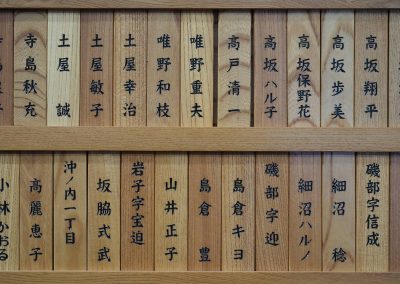 高坂翔平
高坂歩美
高坂保野花
高坂ハル子
高戸清一
唯野重夫
唯野和枝
土屋幸治
土屋敏子
土屋誠
寺島秋充
磯部字信成
細沼稔
細沼ハルノ
磯部字迎
島倉キヨ
島倉豊
山井正子
岩子字宝迫
坂脇式武
沖ノ内一丁目
高麗恵子
小林かおる